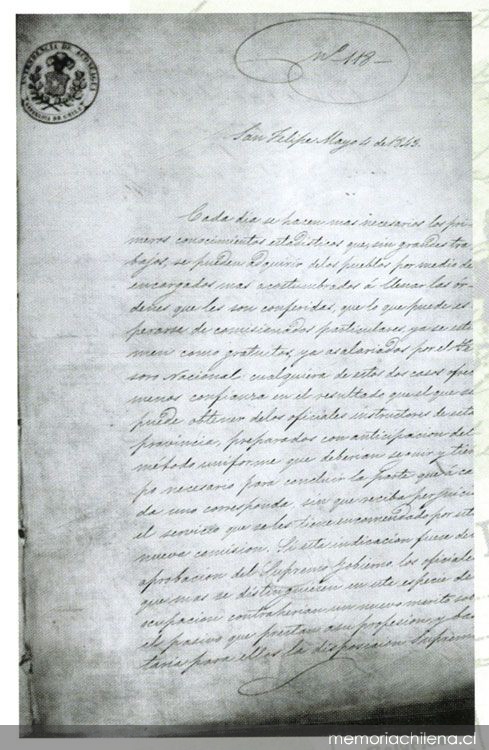 INTENDENCIA DE ACONCAGUA
REPUBLICA DE CHILE
Nº 118
San Felipe Mayo 4 de 1843.
Cada dia se hacen mas necesarios los pri-
meros conocimientos estadisticos que, sin grandes tra
bajos, se pueden adquirir delos pueblos por medio de
encargados mas acostumbrados á llenar las ór-
denes que les son conferidas, que lo que puede es
perarse de comisionados particulares, ya se esti
men como gratuitos, ya asalariados por el Te
soro Nacional: cualquiera de estos dos casos ofrece
menos confianza en el resultado que el que se
puede obtener delos oficiales instructores de esta
provincia, preparados con anticipacion del
método uniforme que deberian seguir y tiem
po necesario para concluir la parte que á ca
da uno corresponda, sin que reciba perjuicio
el servicio que seles tiene encomendado por esta
nueva comision. Si esta indicacion fuese de
aprobacion del Supremo Gobierno, los oficiales
que mas se distinguiesen en esta especie de
ocupacion contraherian un nuevo merito so
el pasivo que prestan asu profesion, y bas
taria para ellos la disposicion Suprema
memoriachilena.cl